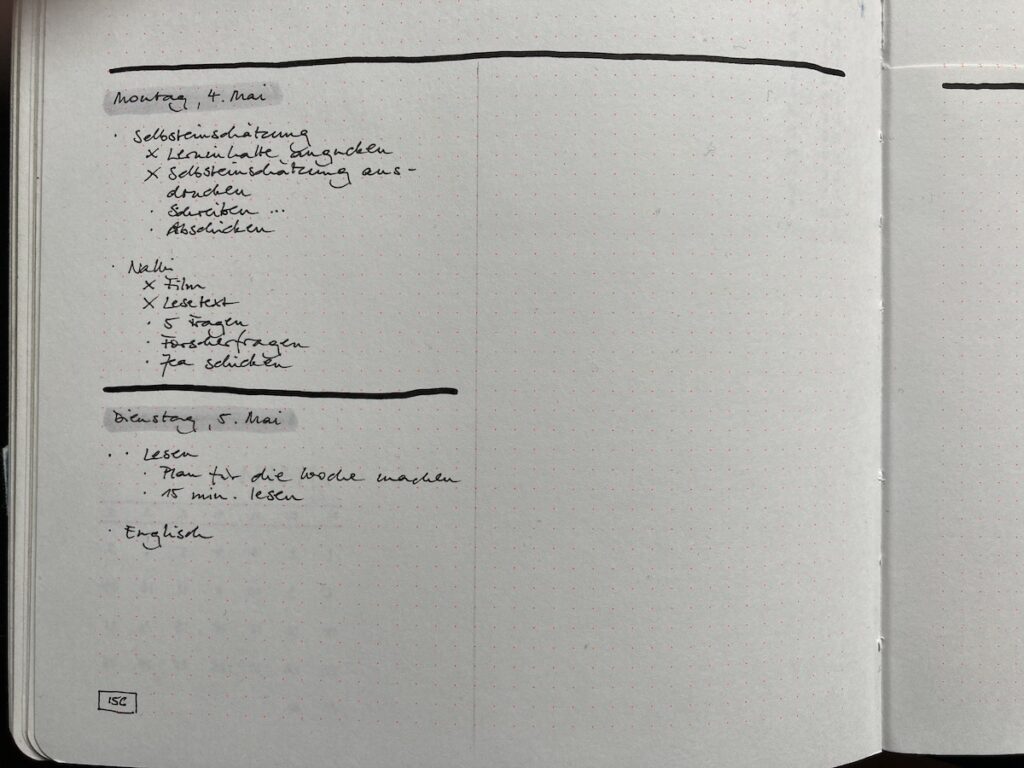 Montag, 4. Mai
· Selbsteinschätzung
x Lerninhalte angucken
x Selbsteinschätzung aus-
drucken
· Schreiben ...
· Abschicken
·
x Film
x Lesetext
· 5 Fragen
· Forscherfragen
· schicken
Dienstag, 5. Mai
· · Lesen
· Plan für die Woche machen
· 15 min. lesen
· Englisch